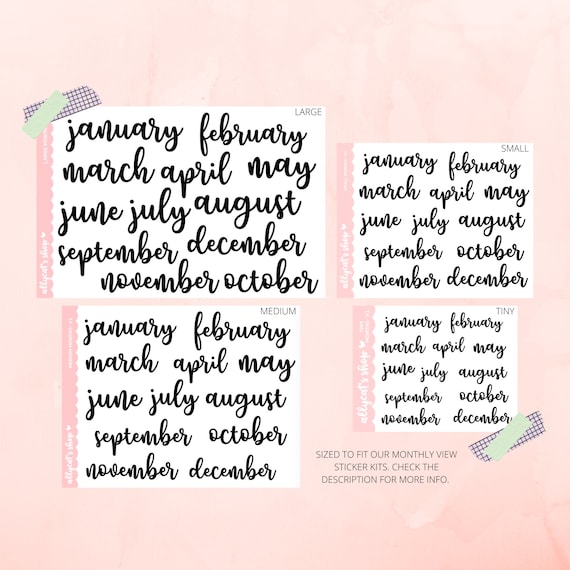 LARGE
january february
march april may
june july august
september december
november october
allycat's shop
SMALL
january february
march april may
june july august
september october
november december
allycat's shop
MEDIUM
january february
march april may
june july august
september october
november december
allycat's shop
TINY
january february
march april may
june july august
september october
november december
allycat's shop
SIZED TO FIT OUR MONTHLY VIEW
STICKER KITS. CHECK THE
DESCRIPTION FOR MORE INFO.